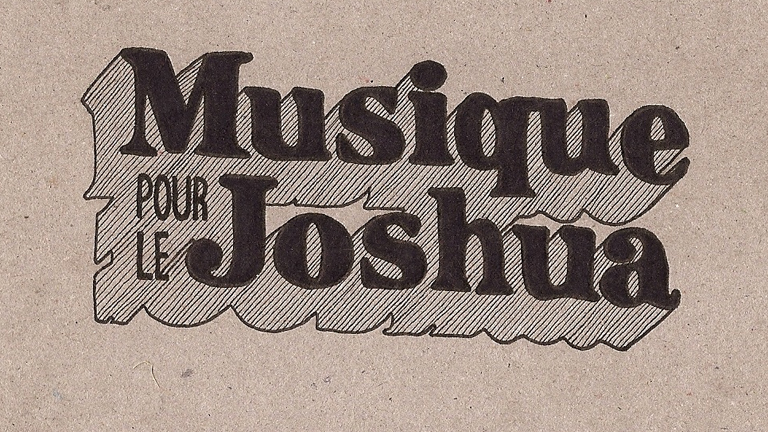 Musique
POUR
LE
Joshua